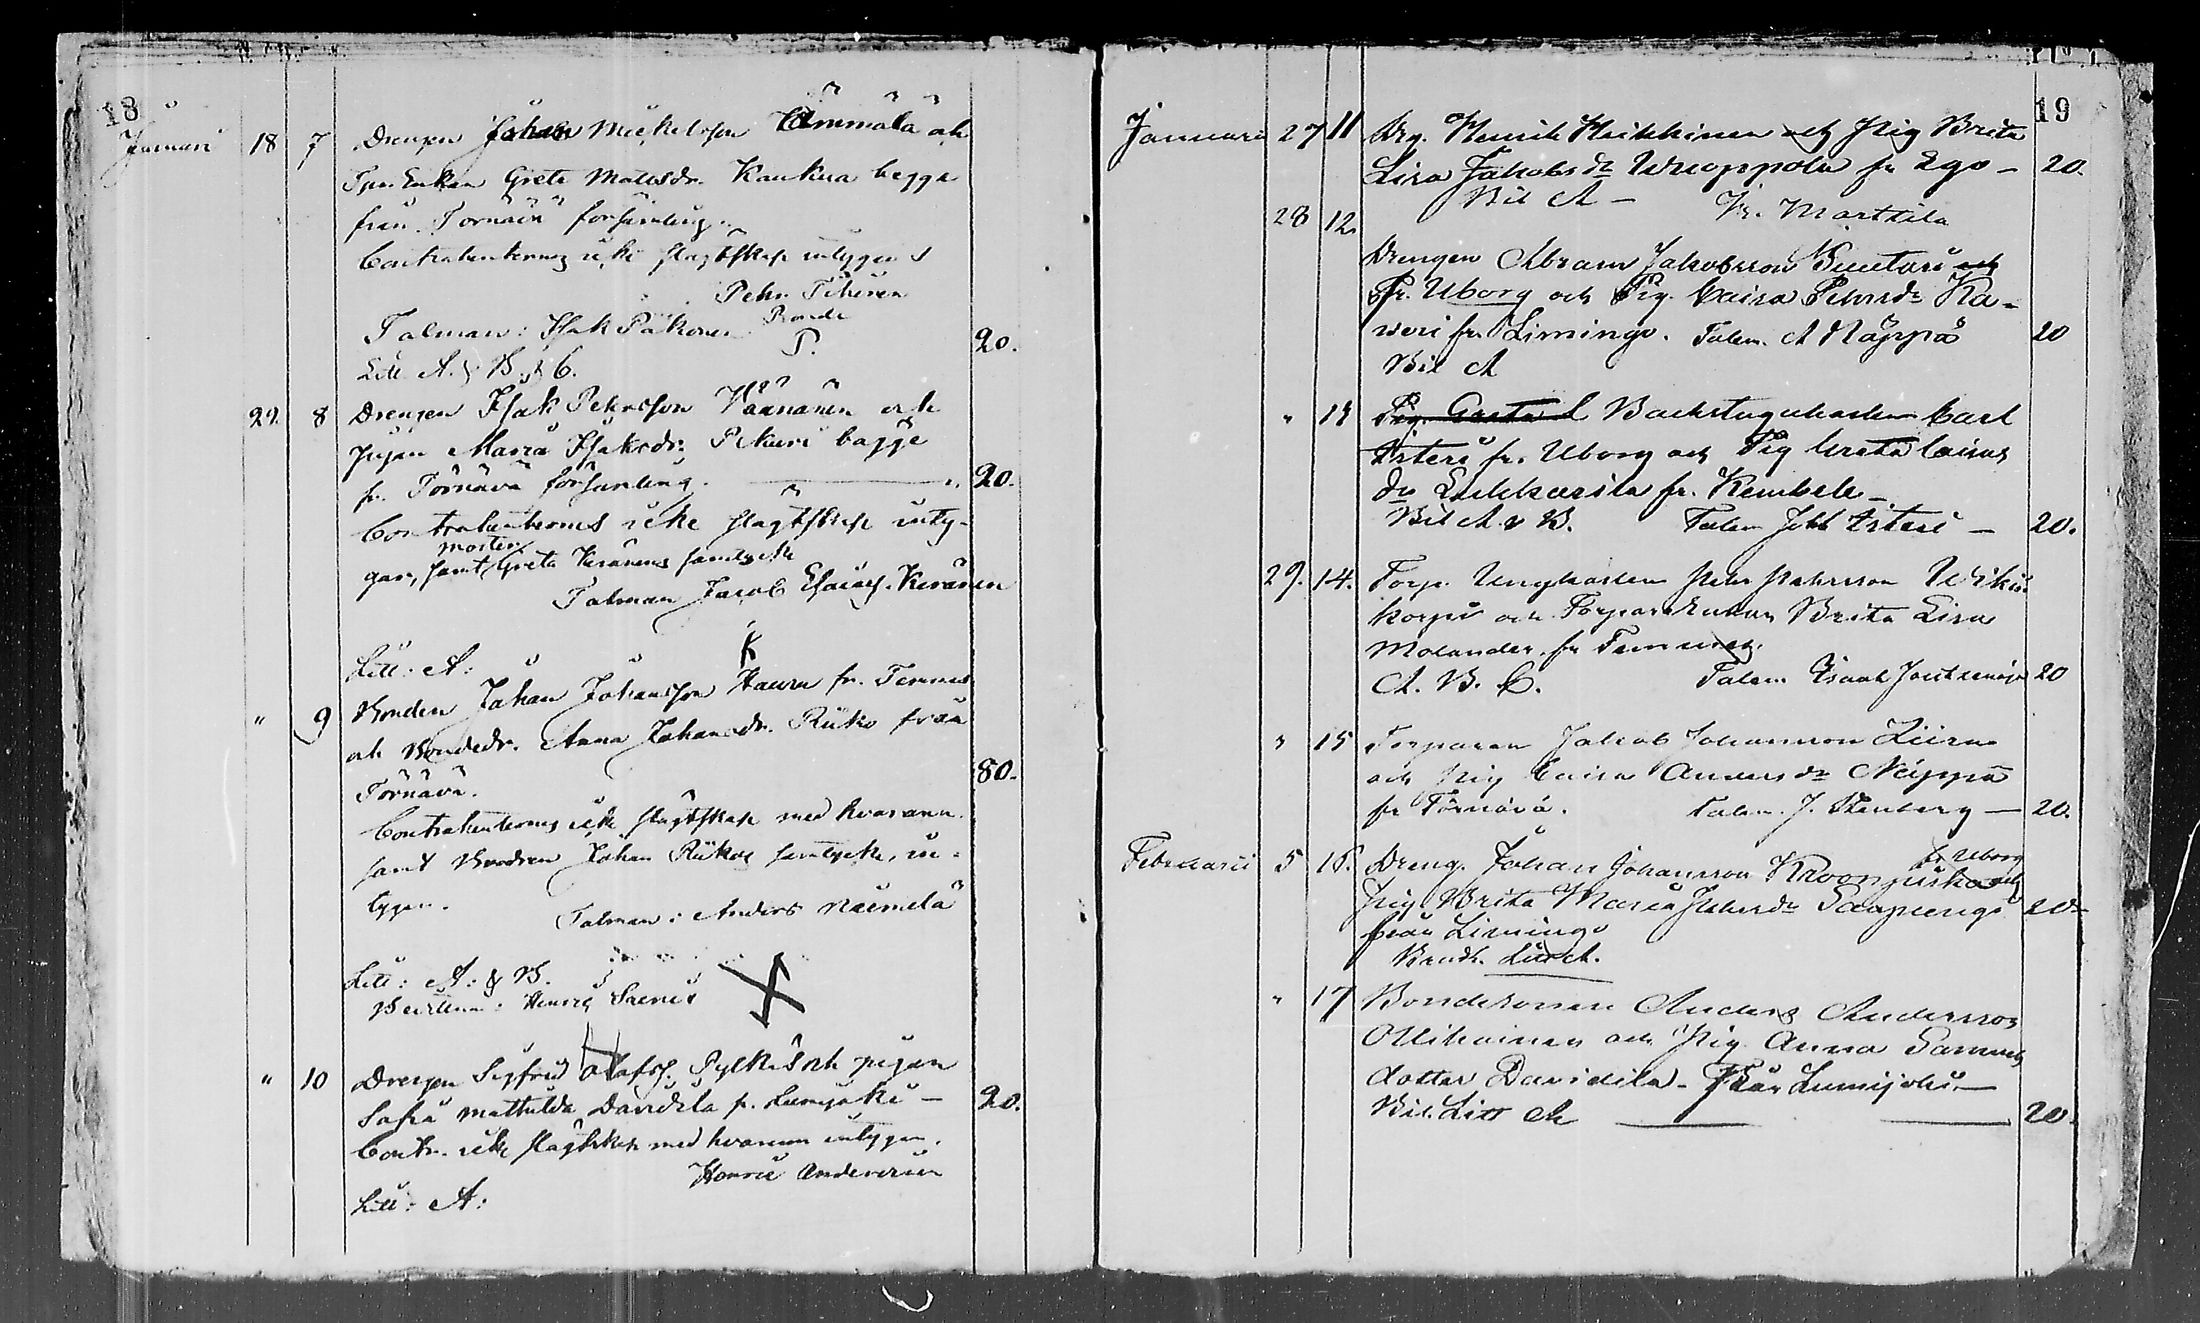 18
Januari 18 7 Drengen Johan Mickelsson Ämmälä och
Enkan Greta Mattsdr. Kaukua begge
från Tornävä församling.
Contrahenternes icke slagtskap intygas
Pehr
Talman: Isak Pakonen Bonde 20.
Litt A. & B. & C.
22. 8 Drengen Isak Pehrsson Väänänen och
pigan Maria Isaksdr. Pikuri bägge
fr. Törnävä församling. " 20.
Contrahenternes icke slagtskap inty-
moster
gar, samt Greta Keränens samtycke
Talman Jacob Esaiass. Keränen
Litt: A:
" 9 Bonden Johan Johansson Haurn fr. Temmes
och Bondedr. Anna Johansdr. Riiko från
Törnävä. 80.
Contrahenternes icke slagtskap med hvarann
samt Bonden Johan Rikos samtycke, in-
tygen.
Talman: Anders Niemelä
Litt: A: & B.
10 Drengen Sigfrid Olafss. Pylkäs och pigan
Sofia Mathilda Davidila fr. Lumijoki — 20.
Contr. icke slagtskap med hvarann intygen.
Henric Andersson
Litt: A:
19
Januari 27 11 Drg. Henrik Heikkinen och Pig Brita
Lisa Jakobsdr Wuoppola fr Ego — 20.
Bil A — Marttila
28 12. Drengen Abram Jakobsson Kuntari
Fr. Uborg och Pig. Caisa Pehrsdr Ka-
veri fr. Limingo. Talm. A Näppä 20
Bil A
" 13 Pig. Greta L Backstuguekarlen Carl
Isteri fr. Uborg och Pig Greta Caisas
dr fr. Kembele —
Bil A & B. Talm Joh Isteri — 20.
29. 14. Torp. Ungkarlen Petter Pehrsson Wiki
korpi och Torpare Enkan Brita Lisa
Molander fr Temmes.
A. B. C. Talm. Isaak 20
" 15 Torparen Jakob Johansson Liira
och Pig Caisa Andersdr Näppä
fr Törnävä. Talm. J. Stenberg — 20.
fr Uborg
Februari 5 16. Dreng. Johan Johansson och
Pig Brita Maria Pehrsdr 20
från Limingo
Litt A.
" 17 Bondesonen Anders Andersson
Ollikainen och Pig Anna Samuels
dotter Davidila. Från Lumijoki. —
Bil. Litt A — 20.